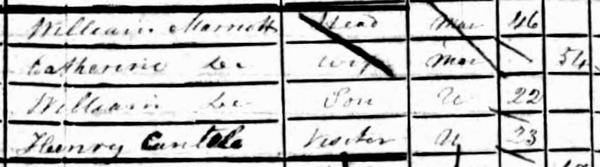 William Marriott Head Mar 46
Catherine Do Wife Mar 54
William Do Son U 22
Henry Cantele Visitor U 23